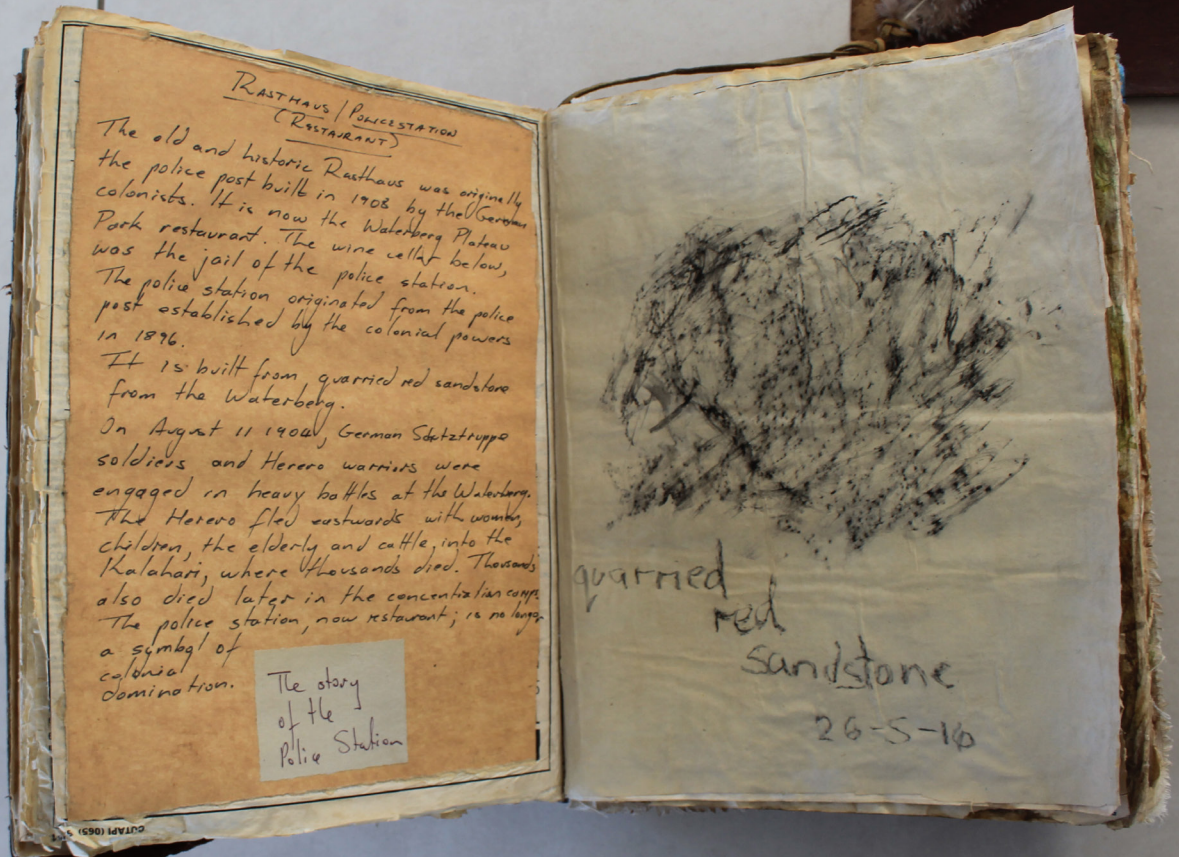 RASTHAUS / POLICESTATION
(RESTAURANT)
The old and historic Rasthaus was originally
the police post built in 1908 by the German
colonists. It is now the Waterberg Plateau
Park restaurant. The wine cellar below,
was the jail of the police station.
The police station originated from the police
post established by the colonial powers
in 1896.
It is built from quarried red sandstone
from the Waterberg.
On August 11 1904, German Schutztruppe
soldiers and Herero warriors were
engaged in heavy battles at the Waterberg.
The Herero fled eastwards with women,
children, the elderly and cattle, into the
Kalahari, where thousands died. Thousands
also died later in the concentration camps.
The police station, now restaurant; is no longer
a symbol of
colonial
domination.
The story
of the
Police Station
quarried
red
sandstone
26-5-16